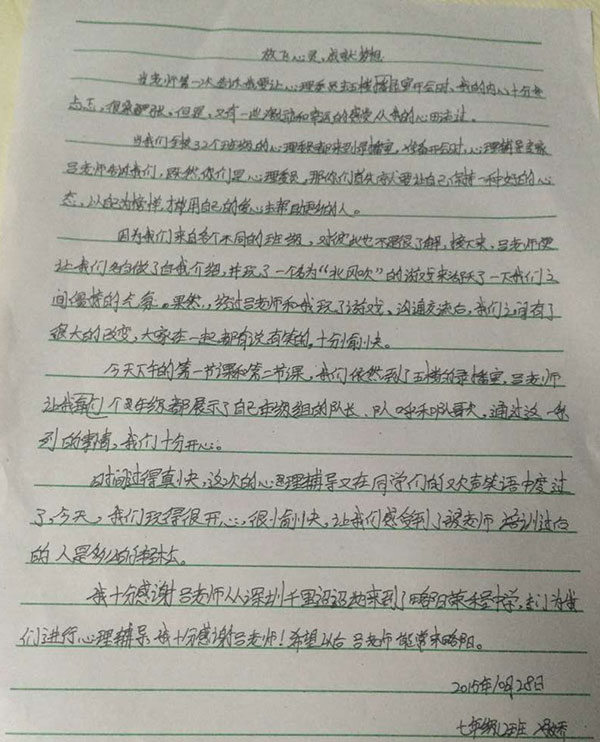 放飞心灵，成就梦想
当老师第一次告诉我要让心理委员去五楼播室开会时，我的内心十分忐
忑，很紧张。但是，又有一些激动和幸运的感觉从我的心田流过。
当我们全校32个班级的心理委员都来到录播室，准备开会时，心理辅导专家
吕老师告诉我们，既然你们是心理委员，那你们首先就要让自己保持一种好的心
态，以自己为榜样，才能用自己的爱心去帮助更多的人。
因为我们来自各个不同的班级，对彼此也不是很了解，接下来，吕老师便
让我们各自做了自我介绍，并玩了一个名为“北风吹”的游戏来活跃了一下我们之
间僵持的气氛。果然，经过吕老师和我玩了游戏、沟通交流后，我们之间有了
很大的改变，大家在一起都有说有笑的，十分愉快。
今天下午的第一节课和第二节课，我们依然到了五楼的录播室，吕老师
让我们每个年级都展示了自己年级组的队长、队呼和队歌，通过这一系
列的事情，我们十分开心。
时间过得真快，这次的心理辅导又在同学们的欢声笑语中度过
了，今天，我们玩得很开心，很愉快，让我们感受到了被老师培训过后
的人是多么的轻松。
我十分感谢吕老师从深圳千里迢迢地来到了略阳荣程中学，专门为我
们进行心理辅导，我十分感谢吕老师！希望以后吕老师能常来略阳。
2015年10月28日
七年级12班